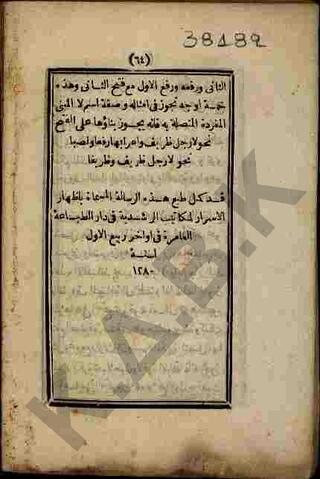 38182
(٦٤)
الثانى ورفعه ورفع الاول مع فتح الثانى وهذه
خمسة اوجه تجوز فى امثاله وصفة اسم لا المبنى
المفردة المتصلة به فانه يجوز بناؤها على الفتح
نحو لا رجل ظريف واعرابها رفعا ونصبا
نحو لا رجل ظريف وظريفا
قد كمل طبع هذه الرسالة المسماة باظهار
الاسرار لمكاتب الرشدية فى دار الطباعة
العامرة فى اواخر ربيع الاول
لسنة
١٢٨٠
K.A.B.K